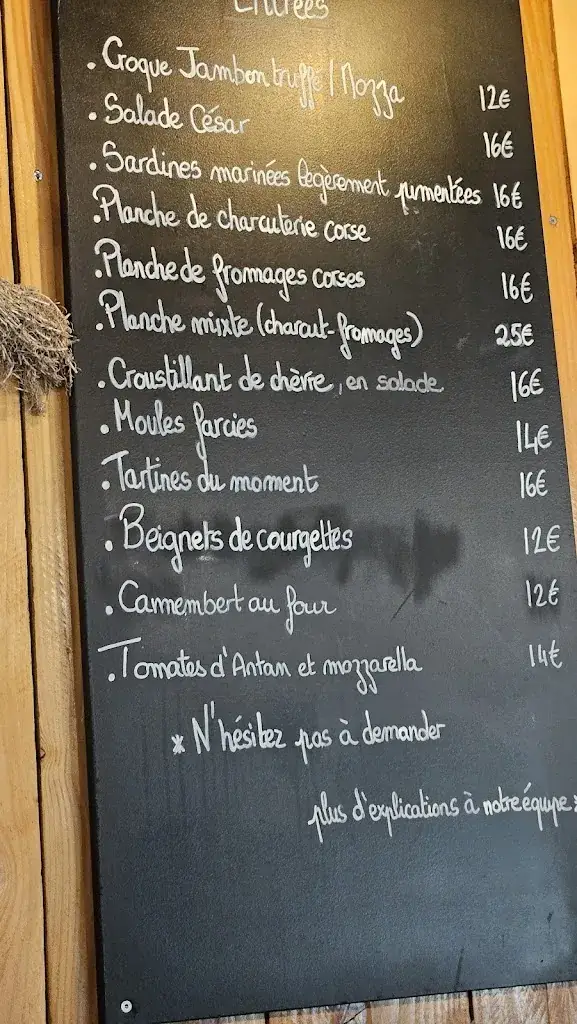 Entrées
. Croque Jambon truffé / Mozza 12€
. Salade César 16€
. Sardines marinées légèrement pimentées 16€
. Planche de charcuterie corse 16€
. Planche de fromages corses 16€
. Planche mixte (charcut-fromages) 25€
. Croustillant de chèvre, en salade 16€
. Moules farcies 14€
. Tartines du moment 16€
. Beignets de courgettes 12€
. Camembert au four 12€
. Tomates d'Antan et mozzarella 14€
* N'hésitez pas à demander
plus d'explications à notre équipe *